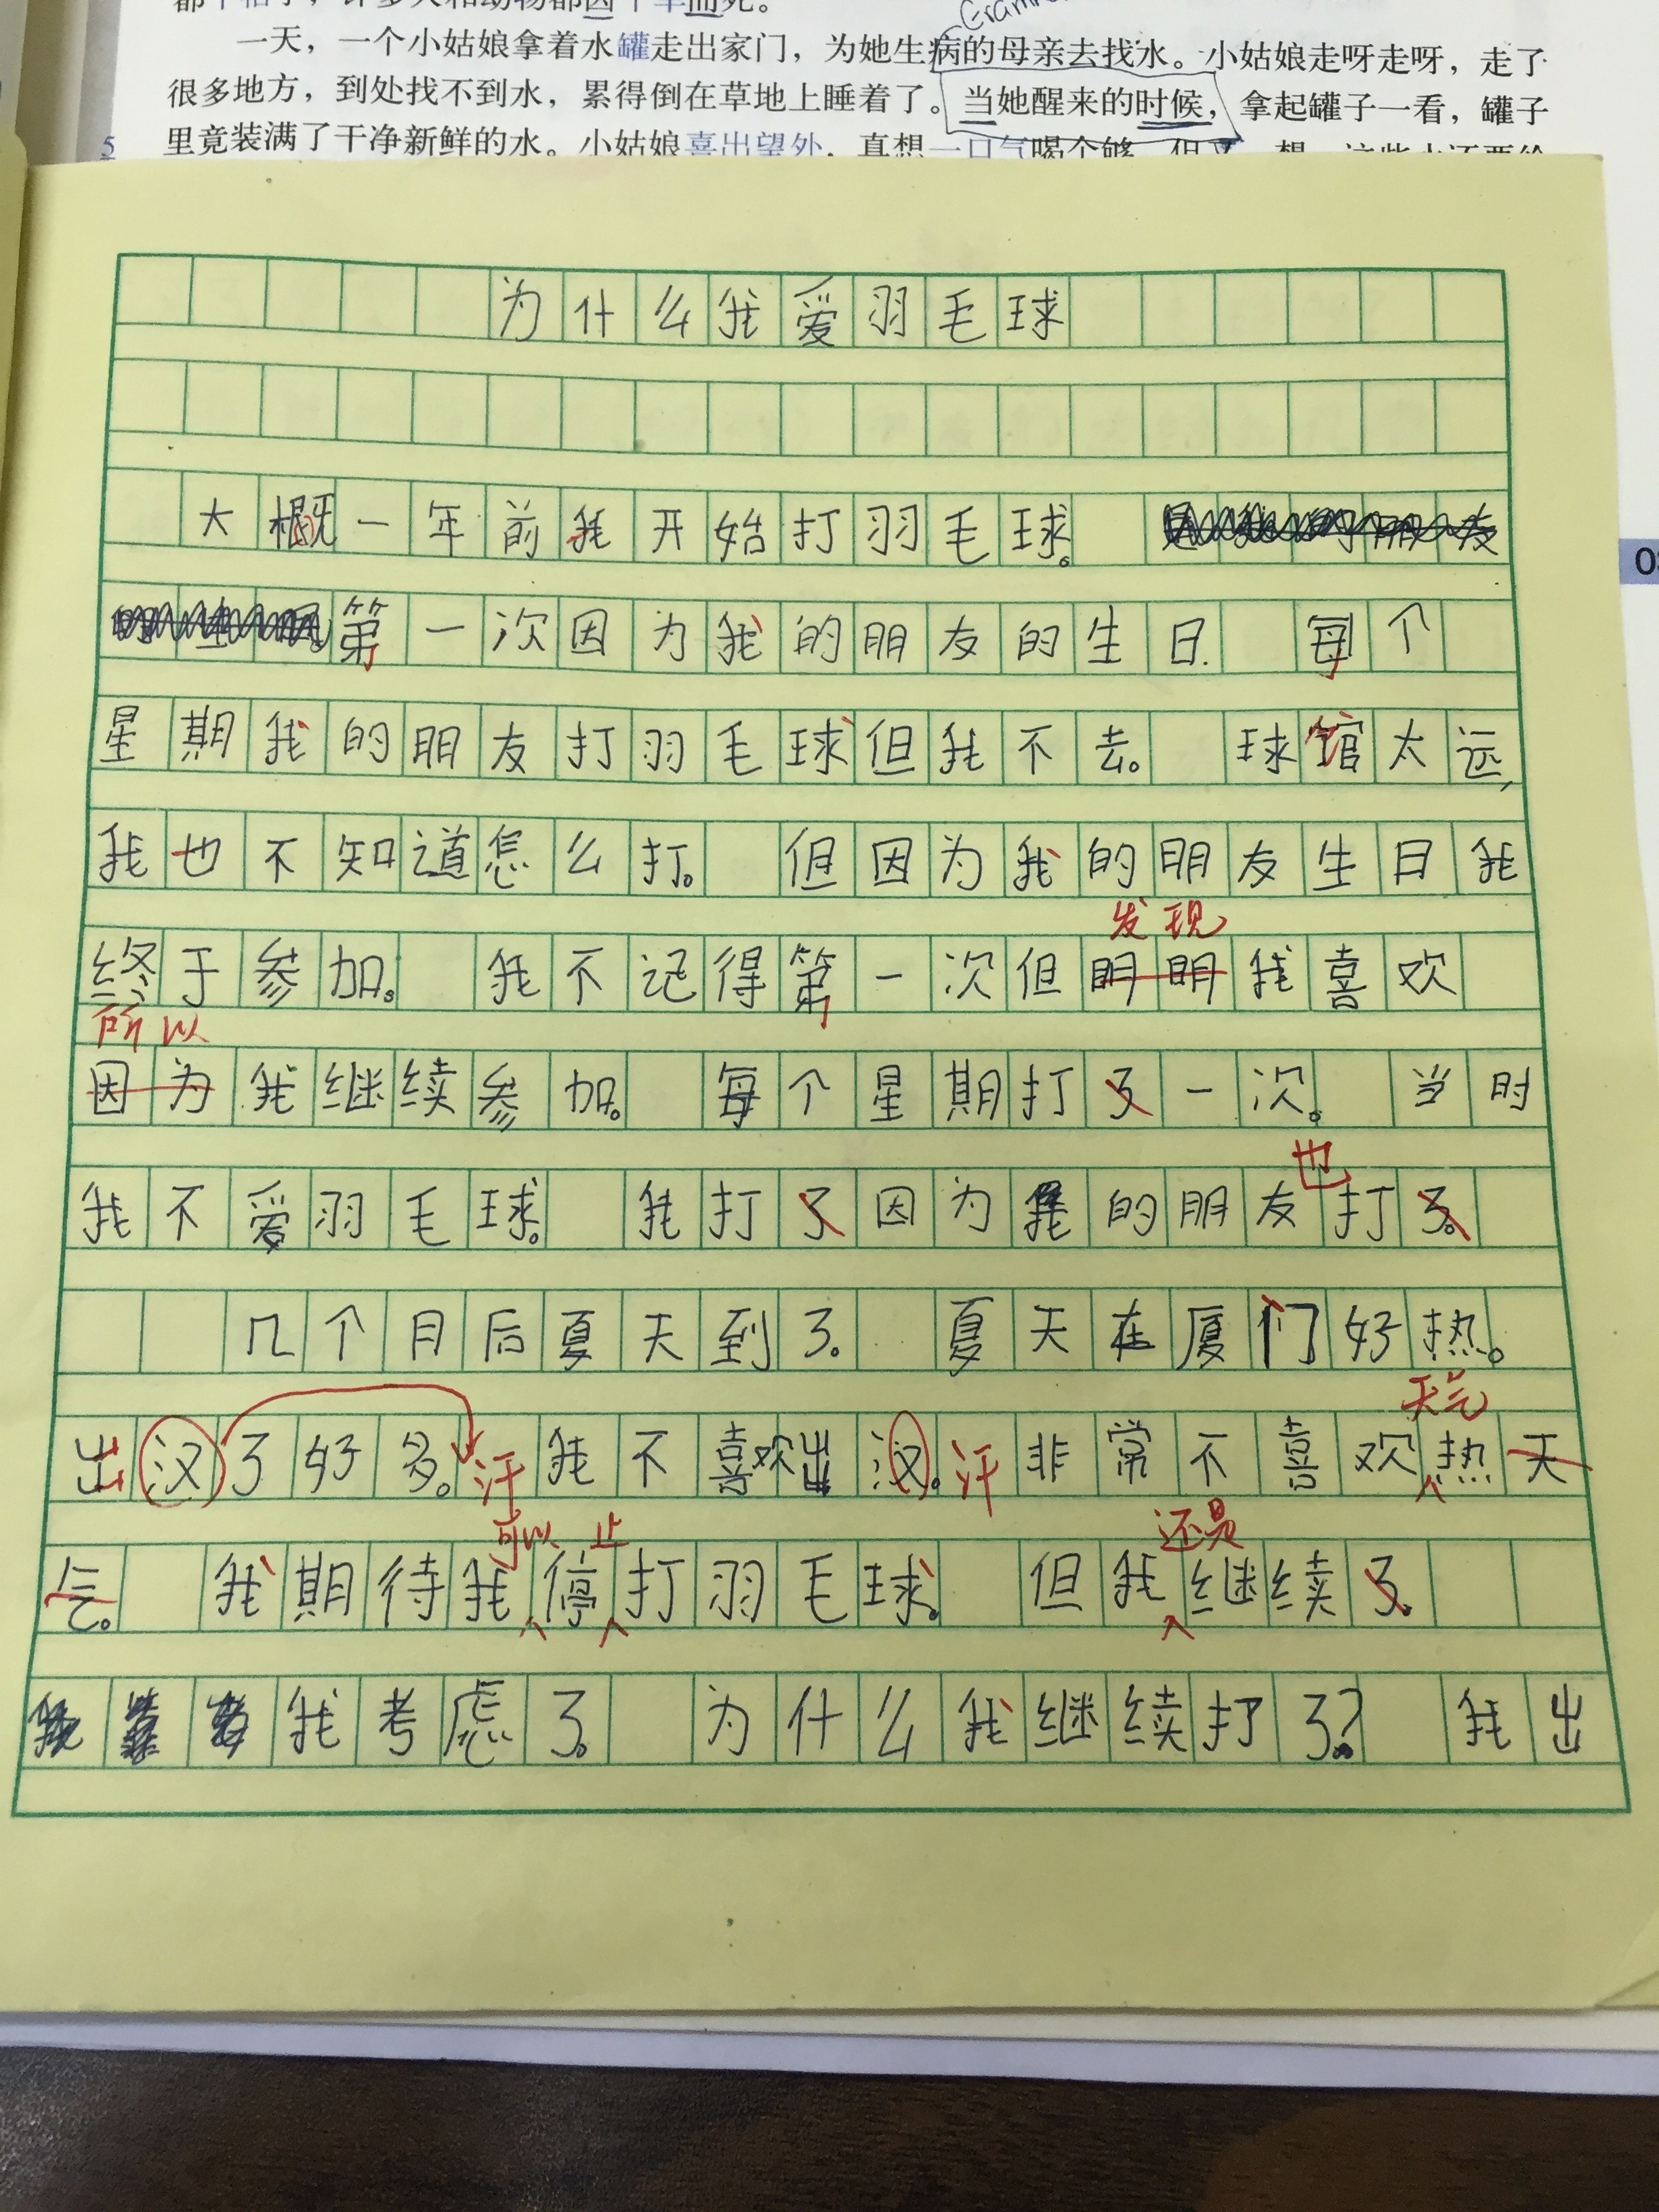 一天，一个小姑娘拿着水罐走出家门，为她生病的母亲去找水。小姑娘走呀走呀，走了
很多地方，到处找不到水，累得倒在草地上睡着了。当她醒来的时候，拿起罐子一看，罐子
5
里竟装满了干净新鲜的水。小姑娘喜出望外，真想一口气喝个够
为什么我爱羽毛球
大概一年前我开始打羽毛球。
第一次因为我的朋友的生日. 每个
星期我的朋友打羽毛球但我不去。 球馆太远，
我也不知道怎么打。 但因为我的朋友生日我
发现
终于参加。 我不记得第一次但明明我喜欢
所以
因为我继续参加。 每个星期打了一次。 当时
也
我不爱羽毛球。 我打了因为我的朋友打了。
几个月后夏天到了。 夏天在厦门好热。
天气
出汉了好多。汗我不喜欢出汉。汗非常不喜欢热天
可以 止 还是
气。 我期待我停打羽毛球。 但我继续了。
我考虑了。 为什么我继续打了？ 我出